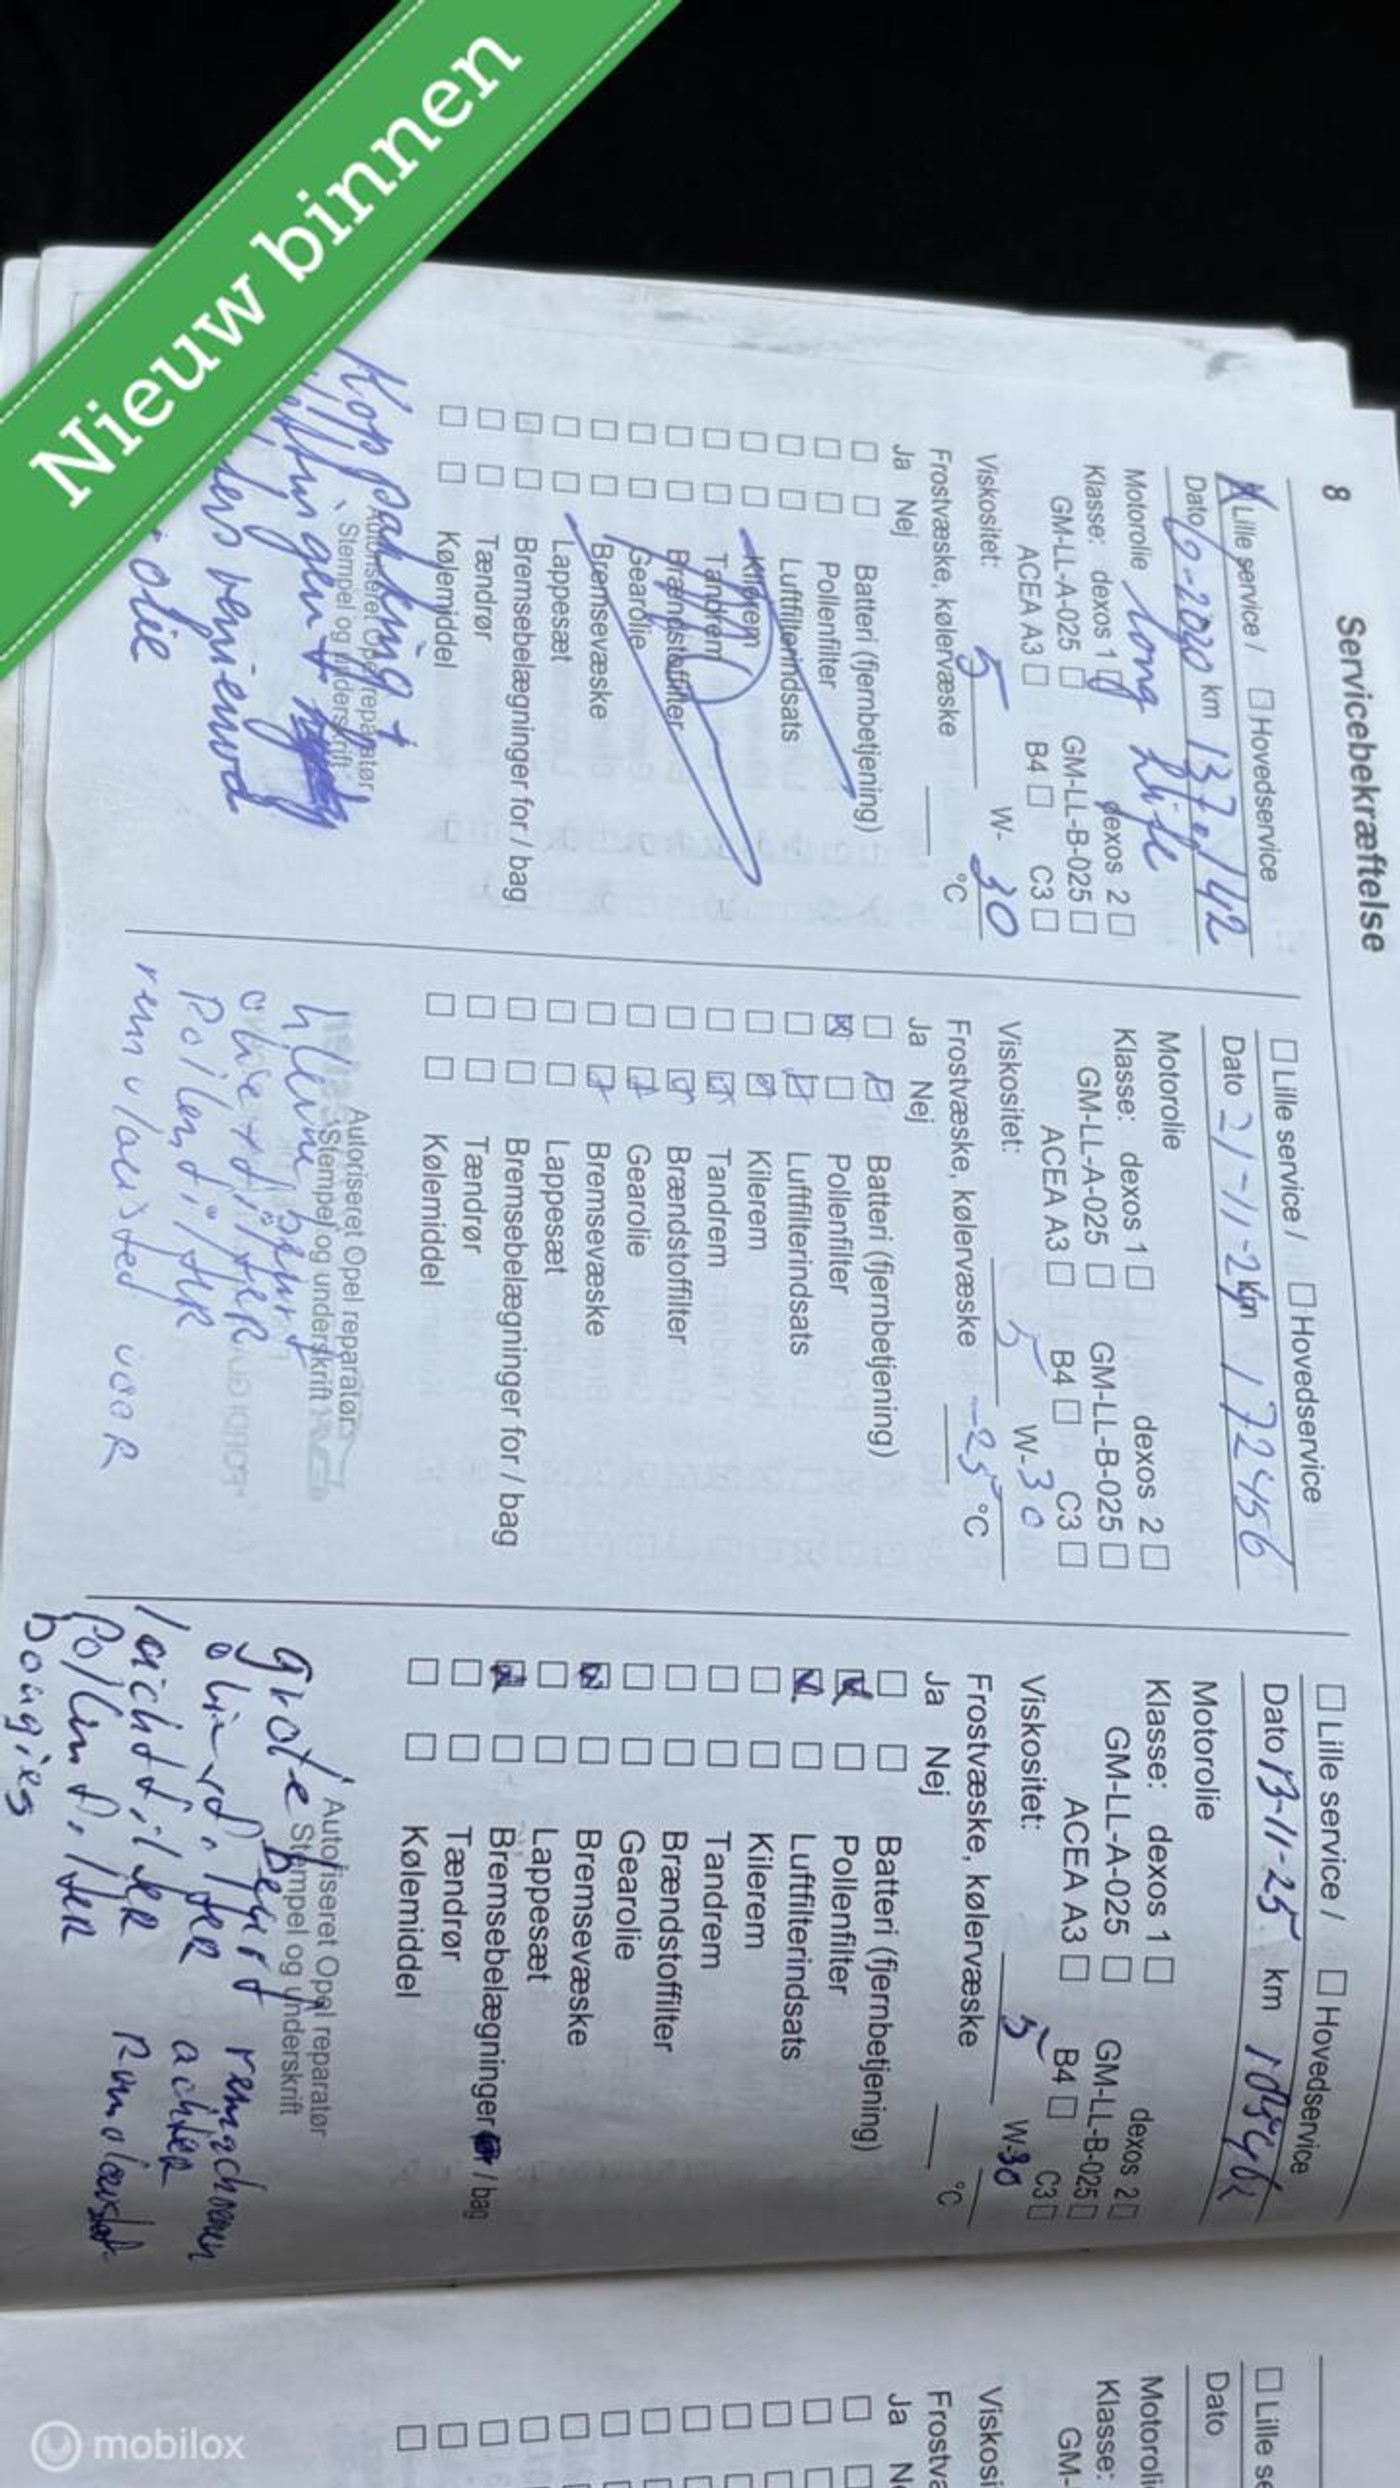 Nieuw binnen
8 Servicebekræftelse
Lille service / Hovedservice
Dato 9-2020 km 137.142
Motorolie long life
Klasse: dexos 1 dexos 2
GM-LL-A-025 GM-LL-B-025
ACEA A3 B4 C3
Viskositet: 5 W- 30
Frostvæske, kølervæske °C
Ja Nej
Batteri (fjernbetjening)
Pollenfilter
Luftfilterindsats
Kilerem
Tandrem
Brændstoffilter
Gearolie
Bremsevæske
Lappesæt
Bremsebelægninger for / bag
Tændrør
Kølemiddel
Autoriseret Opel reparatør
Stempel og underskrift
Kop pakking +
olie
Lille service / Hovedservice
Dato 21-11-2 km 172456
Motorolie
Klasse: dexos 1 dexos 2
GM-LL-A-025 GM-LL-B-025
ACEA A3 B4 C3
Viskositet: 5 W-30
Frostvæske, kølervæske -25 °C
Ja Nej
Batteri (fjernbetjening)
Pollenfilter
Luftfilterindsats
Kilerem
Tandrem
Brændstoffilter
Gearolie
Bremsevæske
Lappesæt
Bremsebelægninger for / bag
Tændrør
Kølemiddel
Autoriseret Opel reparatør
Stempel og underskrift
kleine beurt
olie + filter
Pollenfilter
remvloeistof voor
Lille service / Hovedservice
Dato 13-11-25 km
Motorolie
Klasse: dexos 1 dexos 2
GM-LL-A-025 GM-LL-B-025
ACEA A3 B4 C3
Viskositet: 5 W-30
Frostvæske, kølervæske °C
Ja Nej
Batteri (fjernbetjening)
Pollenfilter
Luftfilterindsats
Kilerem
Tandrem
Brændstoffilter
Gearolie
Bremsevæske
Lappesæt
Bremsebelægninger / bag
Tændrør
Kølemiddel
Autoriseret Opel reparatør
Stempel og underskrift
grote beurt
olie + filter
luchtfilter achter
Pollenfilter
bougies
Lille s
Dato
Motoroli
Klasse:
GM-
Viskosi
Frostva
Ja N
mobilox